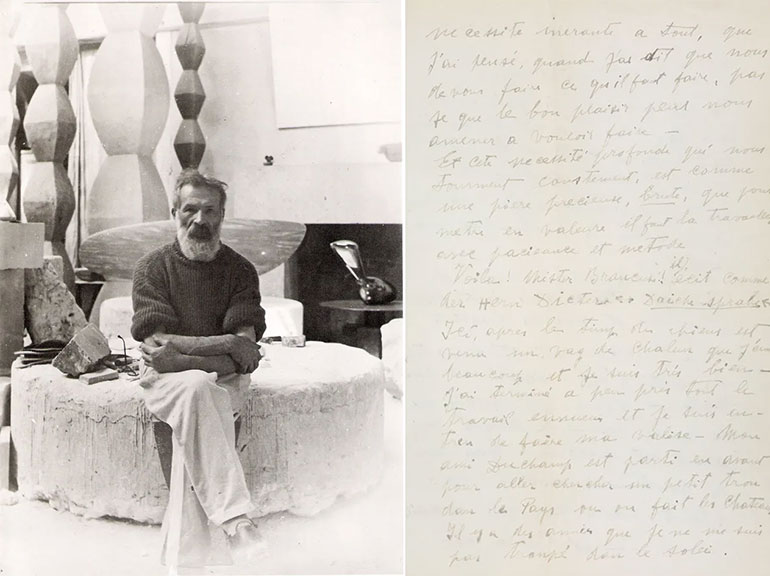 necessite inerante a tout, que
j'ai pensé, quand j'ai dit que nous
devons faire ce qu'il faut faire, pas
se que le bon plaisir peus nous
amener a vouloir faire –
Et cete necessité profonde qui nous
tourment constement, est comme
une piere precieuse, brute, que pour
metre en valeure il faut la travailler
avec paciance et metode
Voila! Mister Brancusi! il ecit comme
der Herr Dicter
Ici, apres le temp des chiens est
venu un vag de chaleur que j'em
beaucoup et je suis très bien –
J'ai terminé a peu près tout le
travail ennueux et je suis en-
tren de faire ma valise – Mon
ami Duchamp est parti en avant
pour aller chercher un petit trou
dan le Pays ou on fait les Chateau
Il y a des années que je ne me suis
pas trempé dan le soleil.